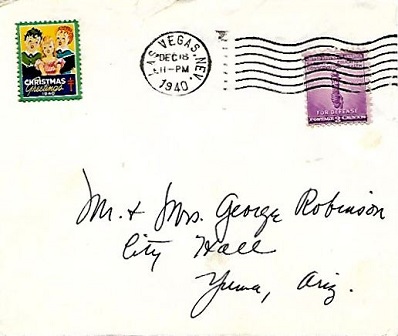 CHRISTMAS
Greetings
1940
LAS VEGAS, NEV.
DEC 18
11-PM
1940
FOR DEFENSE
POSTAGE 3 CENTS
Mr. + Mrs. George Robinson
City Hall
Yuma, Ariz.